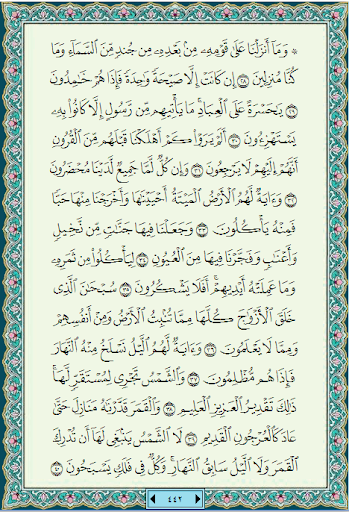 ۞ وَمَآ أَنزَلْنَا عَلَىٰ قَوْمِهِۦ مِنۢ بَعْدِهِۦ مِن جُندٍ مِّنَ ٱلسَّمَآءِ وَمَا
كُنَّا مُنزِلِينَ ٢٨ إِن كَانَتْ إِلَّا صَيْحَةً وَٰحِدَةً فَإِذَا هُمْ خَٰمِدُونَ
٢٩ يَٰحَسْرَةً عَلَى ٱلْعِبَادِ مَا يَأْتِيهِم مِّن رَّسُولٍ إِلَّا كَانُوا۟ بِهِۦ
يَسْتَهْزِءُونَ ٣٠ أَلَمْ يَرَوْا۟ كَمْ أَهْلَكْنَا قَبْلَهُم مِّنَ ٱلْقُرُونِ
أَنَّهُمْ إِلَيْهِمْ لَا يَرْجِعُونَ ٣١ وَإِن كُلٌّ لَّمَّا جَمِيعٌ لَّدَيْنَا مُحْضَرُونَ
٣٢ وَءَايَةٌ لَّهُمُ ٱلْأَرْضُ ٱلْمَيْتَةُ أَحْيَيْنَٰهَا وَأَخْرَجْنَا مِنْهَا حَبًّا
فَمِنْهُ يَأْكُلُونَ ٣٣ وَجَعَلْنَا فِيهَا جَنَّٰتٍ مِّن نَّخِيلٍ
وَأَعْنَٰبٍ وَفَجَّرْنَا فِيهَا مِنَ ٱلْعُيُونِ ٣٤ لِيَأْكُلُوا۟ مِن ثَمَرِهِۦ
وَمَا عَمِلَتْهُ أَيْدِيهِمْ ۖ أَفَلَا يَشْكُرُونَ ٣٥ سُبْحَٰنَ ٱلَّذِى
خَلَقَ ٱلْأَزْوَٰجَ كُلَّهَا مِمَّا تُنۢبِتُ ٱلْأَرْضُ وَمِنْ أَنفُسِهِمْ
وَمِمَّا لَا يَعْلَمُونَ ٣٦ وَءَايَةٌ لَّهُمُ ٱلَّيْلُ نَسْلَخُ مِنْهُ ٱلنَّهَارَ
فَإِذَا هُم مُّظْلِمُونَ ٣٧ وَٱلشَّمْسُ تَجْرِى لِمُسْتَقَرٍّ لَّهَا ۚ
ذَٰلِكَ تَقْدِيرُ ٱلْعَزِيزِ ٱلْعَلِيمِ ٣٨ وَٱلْقَمَرَ قَدَّرْنَٰهُ مَنَازِلَ حَتَّىٰ
عَادَ كَٱلْعُرْجُونِ ٱلْقَدِيمِ ٣٩ لَا ٱلشَّمْسُ يَنۢبَغِى لَهَآ أَن تُدْرِكَ
ٱلْقَمَرَ وَلَا ٱلَّيْلُ سَابِقُ ٱلنَّهَارِ ۚ وَكُلٌّ فِى فَلَكٍ يَسْبَحُونَ ٤٠
٤٤٢